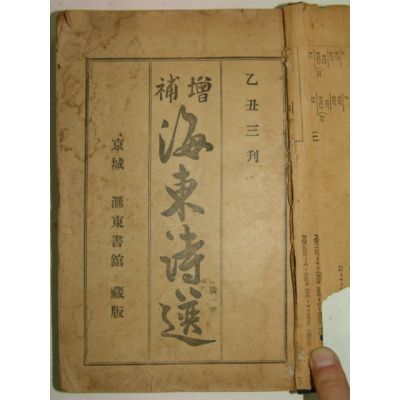 乙丑三刊
增補
海東詩選
京城 滙東書館 藏版